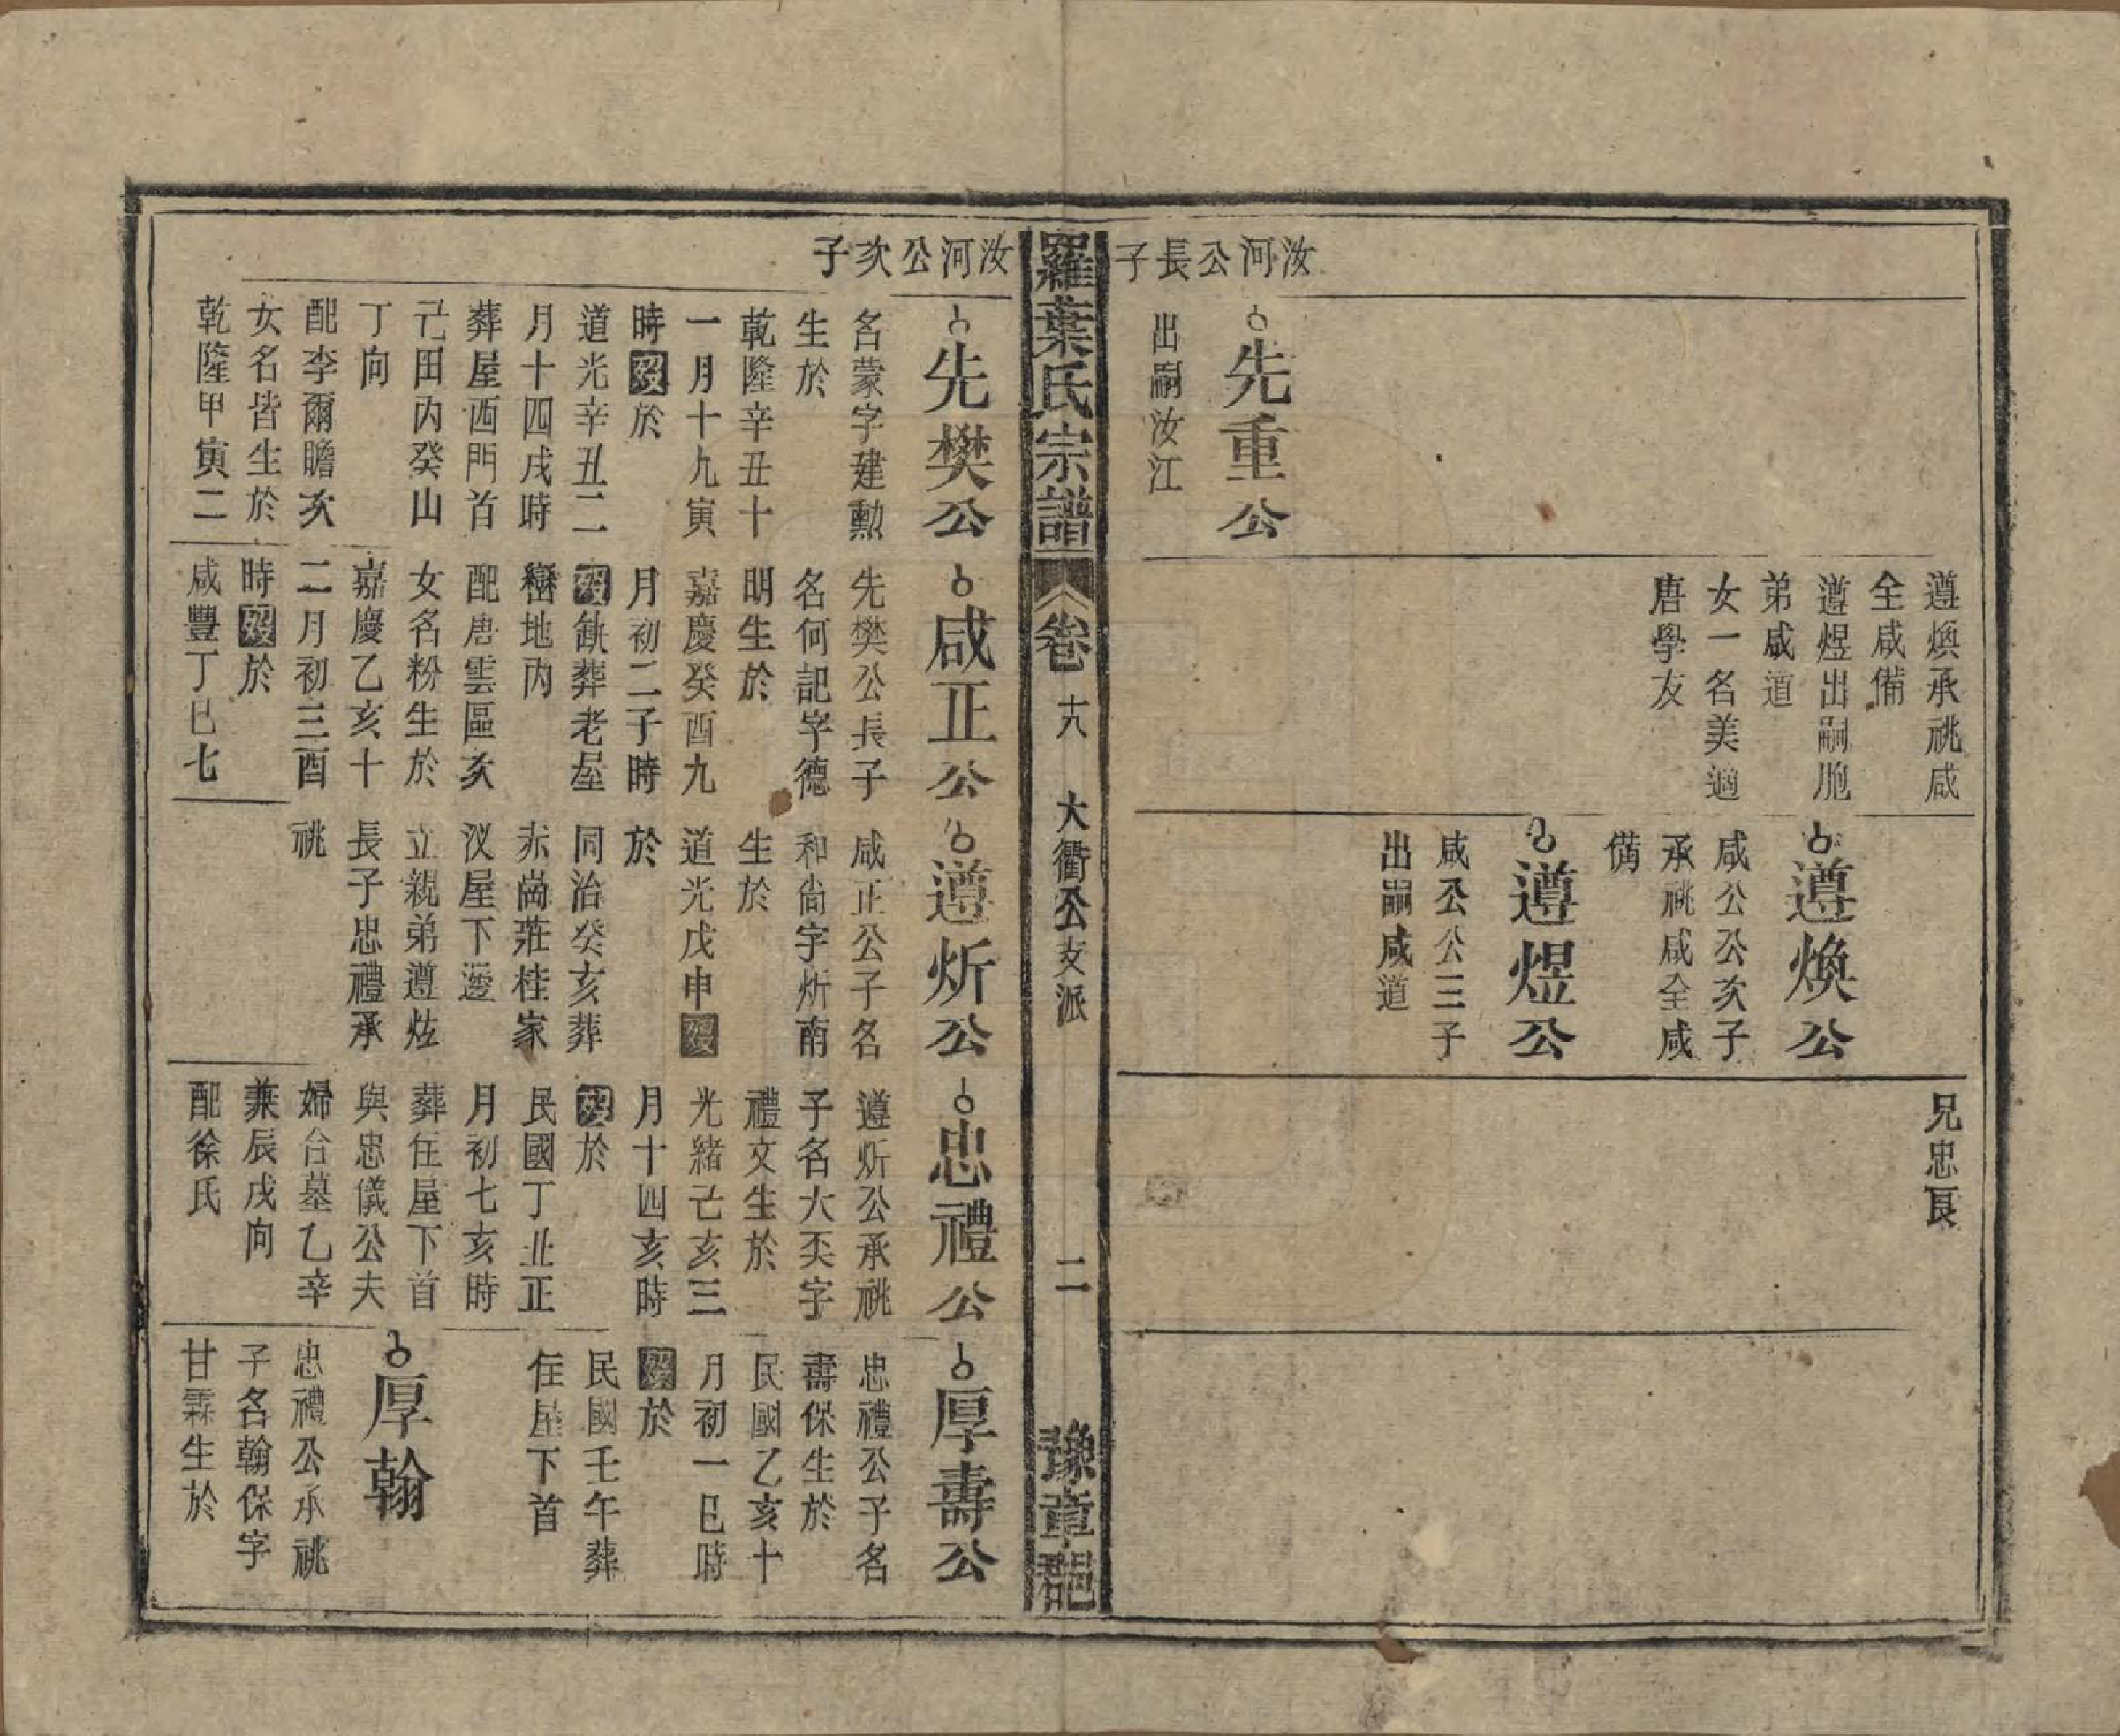 汝河公長子
先重公
出嗣汝江
遵煥承祧咸
全咸備
遵煜出嗣胞
弟咸道
女一名美適
唐學友
遵煥公
咸公公次子
承祧咸全咸
備
遵煜公
咸公公三子
出嗣咸道
兄忠良
羅葉氏宗譜
卷
十八
大衢公支派
二
豫章郡
汝河公次子
先樊公
名蒙字建勳
生於
乾隆辛丑十
一月十九寅
時歿於
道光辛丑二
月十四戌時
葬屋西門首
己田丙癸山
丁向
配李爾瞻次
女名皆生於
乾隆甲寅二
咸正公
先樊公長子
名何記字德
明生於
嘉慶癸酉九
月初二子時
歿缺葬老屋
巒地內
配唐雲區次
女名粉生於
嘉慶乙亥十
二月初三酉
時歿於
咸豐丁巳七
遵炘公
咸正公子名
和尙字炘南
生於
道光戊申歿
於
同治癸亥葬
赤崗莊桂家
汊屋下邊
立親弟遵炫
長子忠禮承
祧
忠禮公
遵炘公承祧
子名大奀字
禮文生於
光緒己亥三
月十四亥時
歿於
民國丁丑正
月初七亥時
葬住屋下首
與忠儀公夫
婦合墓乙辛
兼辰戌向
配徐氏
厚壽公
忠禮公子名
壽保生於
民國乙亥十
月初一巳時
歿於
民國壬午葬
住屋下首
厚翰
忠禮公承祧
子名翰保字
甘霖生於